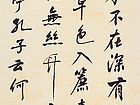 水不在深有
草色入簾青
無絲竹
孔子云何